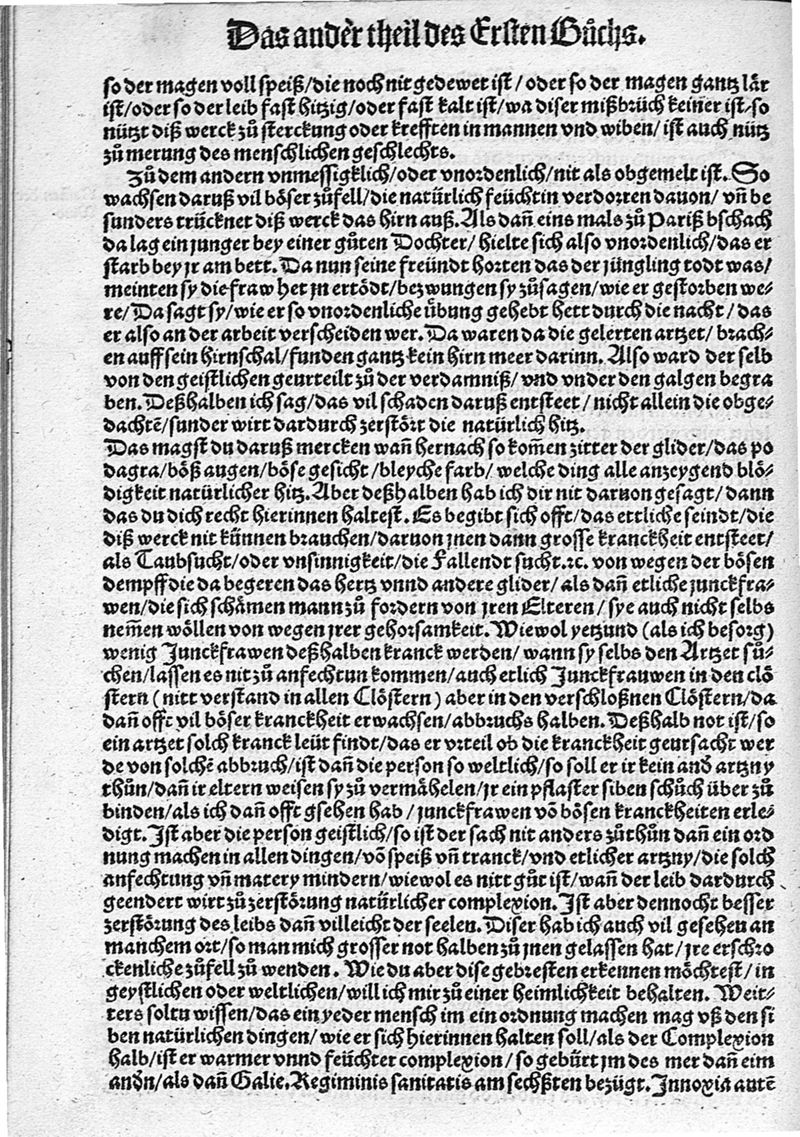 Das andeͤr theil des Ersten Buͦchs.
so der magen voll speiß/die noch nit gedewet ist/ oder so der magen gantz laͤr
ist/oder so der leib fast hitzig/oder fast kalt ist/wa diser mißbruͤch keiner ist/so
nuͤtzt diß werck zuͦ sterckung oder krefften in mannen vnd wiben/ ist auch nuͤtz
zuͦ merung des menschlichen geschlechts.
Zuͦ dem andern vnmessigklich/oder vnordenlich/nit als obgemelt ist. So
wachsen daruß vil boͤser zuͦfell/die natuͤrlich feuͤchtin verdorren dauon/ vñ be
sunders truͤcknet diß werck das hirn auß. Als dañ eins mals zuͦ Pariß bschach
da lag ein junger bey einer guͦten Dochter/ hielte sich also vnordenlich/das er
starb bey jr am bett. Da nun seine freuͤndt horten das der juͤngling todt was/
meinten sy die fraw het jn ertoͤdt/bezwungen sy zuͦsagen/wie er gestorben we-
re/Da sagt sy/wie er so vnordenliche uͤbung gehebt hett durch die nacht/ das
er also an der arbeit verscheiden wer. Da waren da die gelerten artzet/ brach-
en auff sein hirnschal/funden gantz kein hirn meer darinn. Also ward der selb
von den geistlichen geurteilt zuͦ der verdamniß/ vnd vnder den galgen begra
ben. Deßhalben ich sag/das vil schaden daruß entsteet/ nicht allein die obge-
dachtẽ/sunder wirt dardurch zerstoͤrt die natuͤrlich hitz.
Das magst du daruß mercken wañ hernach so kom̃en zitter der glider/das po
dagra/boͤß augen/boͤse gesicht/bleyche farb/ welche ding alle anzeygend bloͤ-
digkeit natuͤrlicher hitz. Aber deßhalben hab ich dir nit daruon gesagt/ dann
das du dich recht hierinnen haltest. Es begibt sich offt/das ettliche seindt/die
diß werck nit kuͤnnen brauchen/daruon jnen dann grosse kranckheit entsteet/
als Taubsucht/oder vnsinnigkeit/die Fallendt sucht.ꝛc. von wegen der boͤsen
dempff die da begeren das hertz vnnd andere glider/ als dañ etliche junckfra-
wen/die sich schaͤmen mann zuͦ fordern von jren Elteren/ sye auch nicht selbs
nem̃en woͤllen von wegen jrer gehorsamkeit. Wiewol yetzund (als ich besorg)
wenig Junckfrawen deßhalben kranck werden/ wann sy selbs den Artzet suͦ-
chen/lassen es nit zuͦ anfechtun kommen/auch etlich Junckfrauwen in den cloͤ
stern (nitt verstand in allen Cloͤstern) aber in den verschloßnen Cloͤstern/da
dañ offt vil boͤser kranckheit erwachsen/abbruchs halben. Deßhalb not ist/so
ein artzet solch kranck leuͤt findt/das er vrteil ob die kranckheit geursacht wer
de von solchẽ abbruch/ist dañ die person so weltlich/so soll er ir kein and̾ artzny
thuͦn/dañ ir eltern weisen sy zuͦ vermaͤhelen/jr ein pflaster siben schuͦch uͤber zuͦ
binden/als ich dañ offt gsehen hab/ junckfrawen võ boͤsen kranckheiten erle-
digt. Ist aber die person geistlich/so ist der sach nit anders zuͦthuͦn dañ ein ord
nung machen in allen dingen/võ speiß vñ tranck/vnd etlicher artzny/die solch
anfechtung vñ matery mindern/wiewol es nitt guͦt ist/wañ der leib dardurch
geendert wirt zuͦ zerstoͤrung natuͤrlicher complexion. Ist aber dennocht besser
zerstoͤrung des leibs dañ villeicht der seelen. Diser hab ich auch vil gesehen an
manchem ort/so man mich grosser not halben zuͦ jnen gelassen hat/jre erschro
ckenliche zuͦfell zuͦ wenden. Wie du aber dise gebresten erkennen moͤchtest/ in
geystlichen oder weltlichen/will ich mir zuͦ einer heimlichkeit behalten. Weit-
ters soltu wissen/das ein yeder mensch im ein ordnung machen mag vß den si
ben natuͤrlichen dingen/ wie er sich hierinnen halten soll/als der Complexion
halb/ist er warmer vnnd feuͤchter complexion/ so gebuͤrt jm des mer dañ eim
and̾n/als dañ Galie. Regiminis sanitatis am sechßten bezuͤgt. Innoxia autẽ